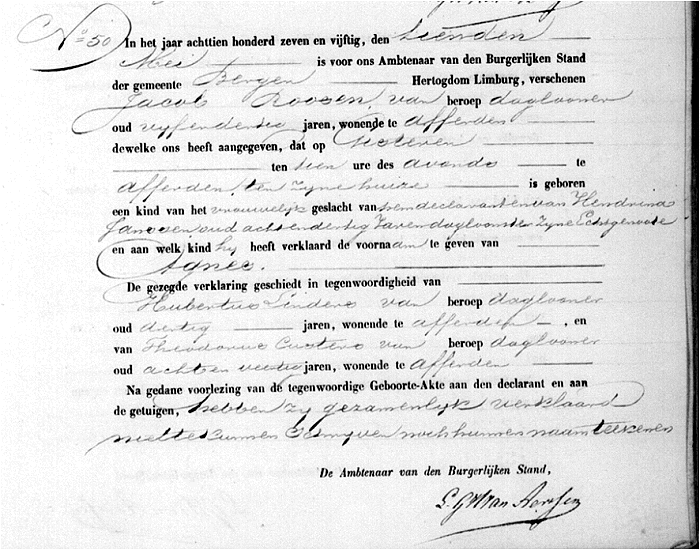 No 50 In het jaar achttien honderd zeven en vijftig, den tienden
Mei is voor ons Ambtenaar van den Burgerlijken Stand
der gemeente Bergen Hertogdom Limburg, verschenen
Jacob Roosen, van beroep daglooner
oud vyfendertig jaren, wonende te Afferden
dewelke ons heeft aangegeven, dat op Gisteren
ten tien ure des avonds te
Afferden, ten zyne huize is geboren
een kind van het vrouwelyk geslacht van hem declarant en van Hendrina
Janssen oud achtendertig Jaren dagloonster Zyne Echtgenoote
en aan welk kind hy heeft verklaard de voornaam te geven van
Agnes.
De gezegde verklaring geschiedt in tegenwoordigheid van
Hubertus Linders van beroep daglooner
oud dertig jaren, wonende te Afferden, en
van Theodorus Custers van beroep daglooner
oud achten veertig jaren, wonende te Afferden
Na gedane voorlezing van de tegenwoordige Geboorte-Akte aan den declarant en aan
de getuigen, hebben zy gezamenlyk verklaard
niet te kunnen schryven noch hunnen naam teekenen
De Ambtenaar van den Burgerlijken Stand,